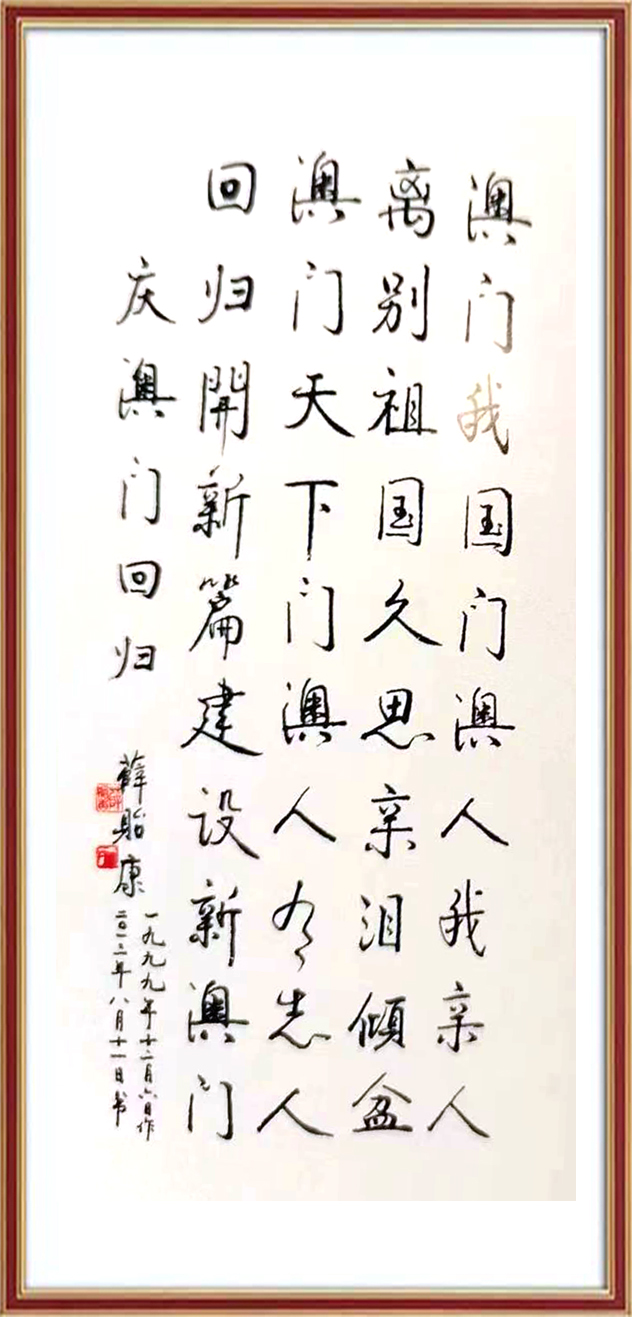 澳门我国门澳人我亲人
离别祖国久思亲泪倾盆
澳门天下门澳人有志人
回归開新篇建设新澳门
庆澳门回归
薛贻康
一九九九年十二月六日作
二〇一三年八月十一日书